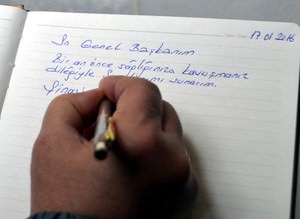 17 01 2016
Sn Genel Başkanım
Bir an önce sağlığınıza kavuşmanız
dileğiyle sunarım.